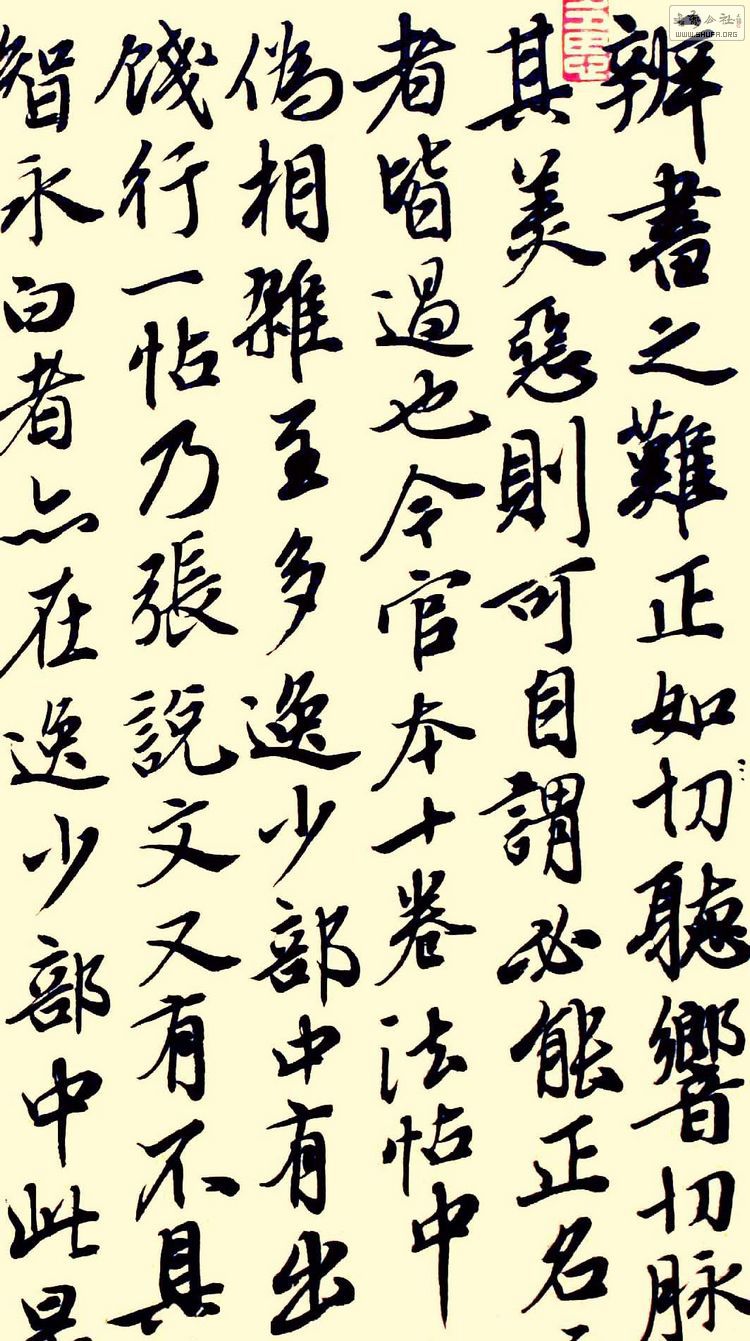 辨書之難正如切聽響切脉
其美惡則可自謂必能正名
者皆過也今官本十卷法帖中
偽相雜至多逸少部中有出
餞行一帖乃張說文又有不具
智永白者亦在逸少部中此
WWW.SHUFA.ORG